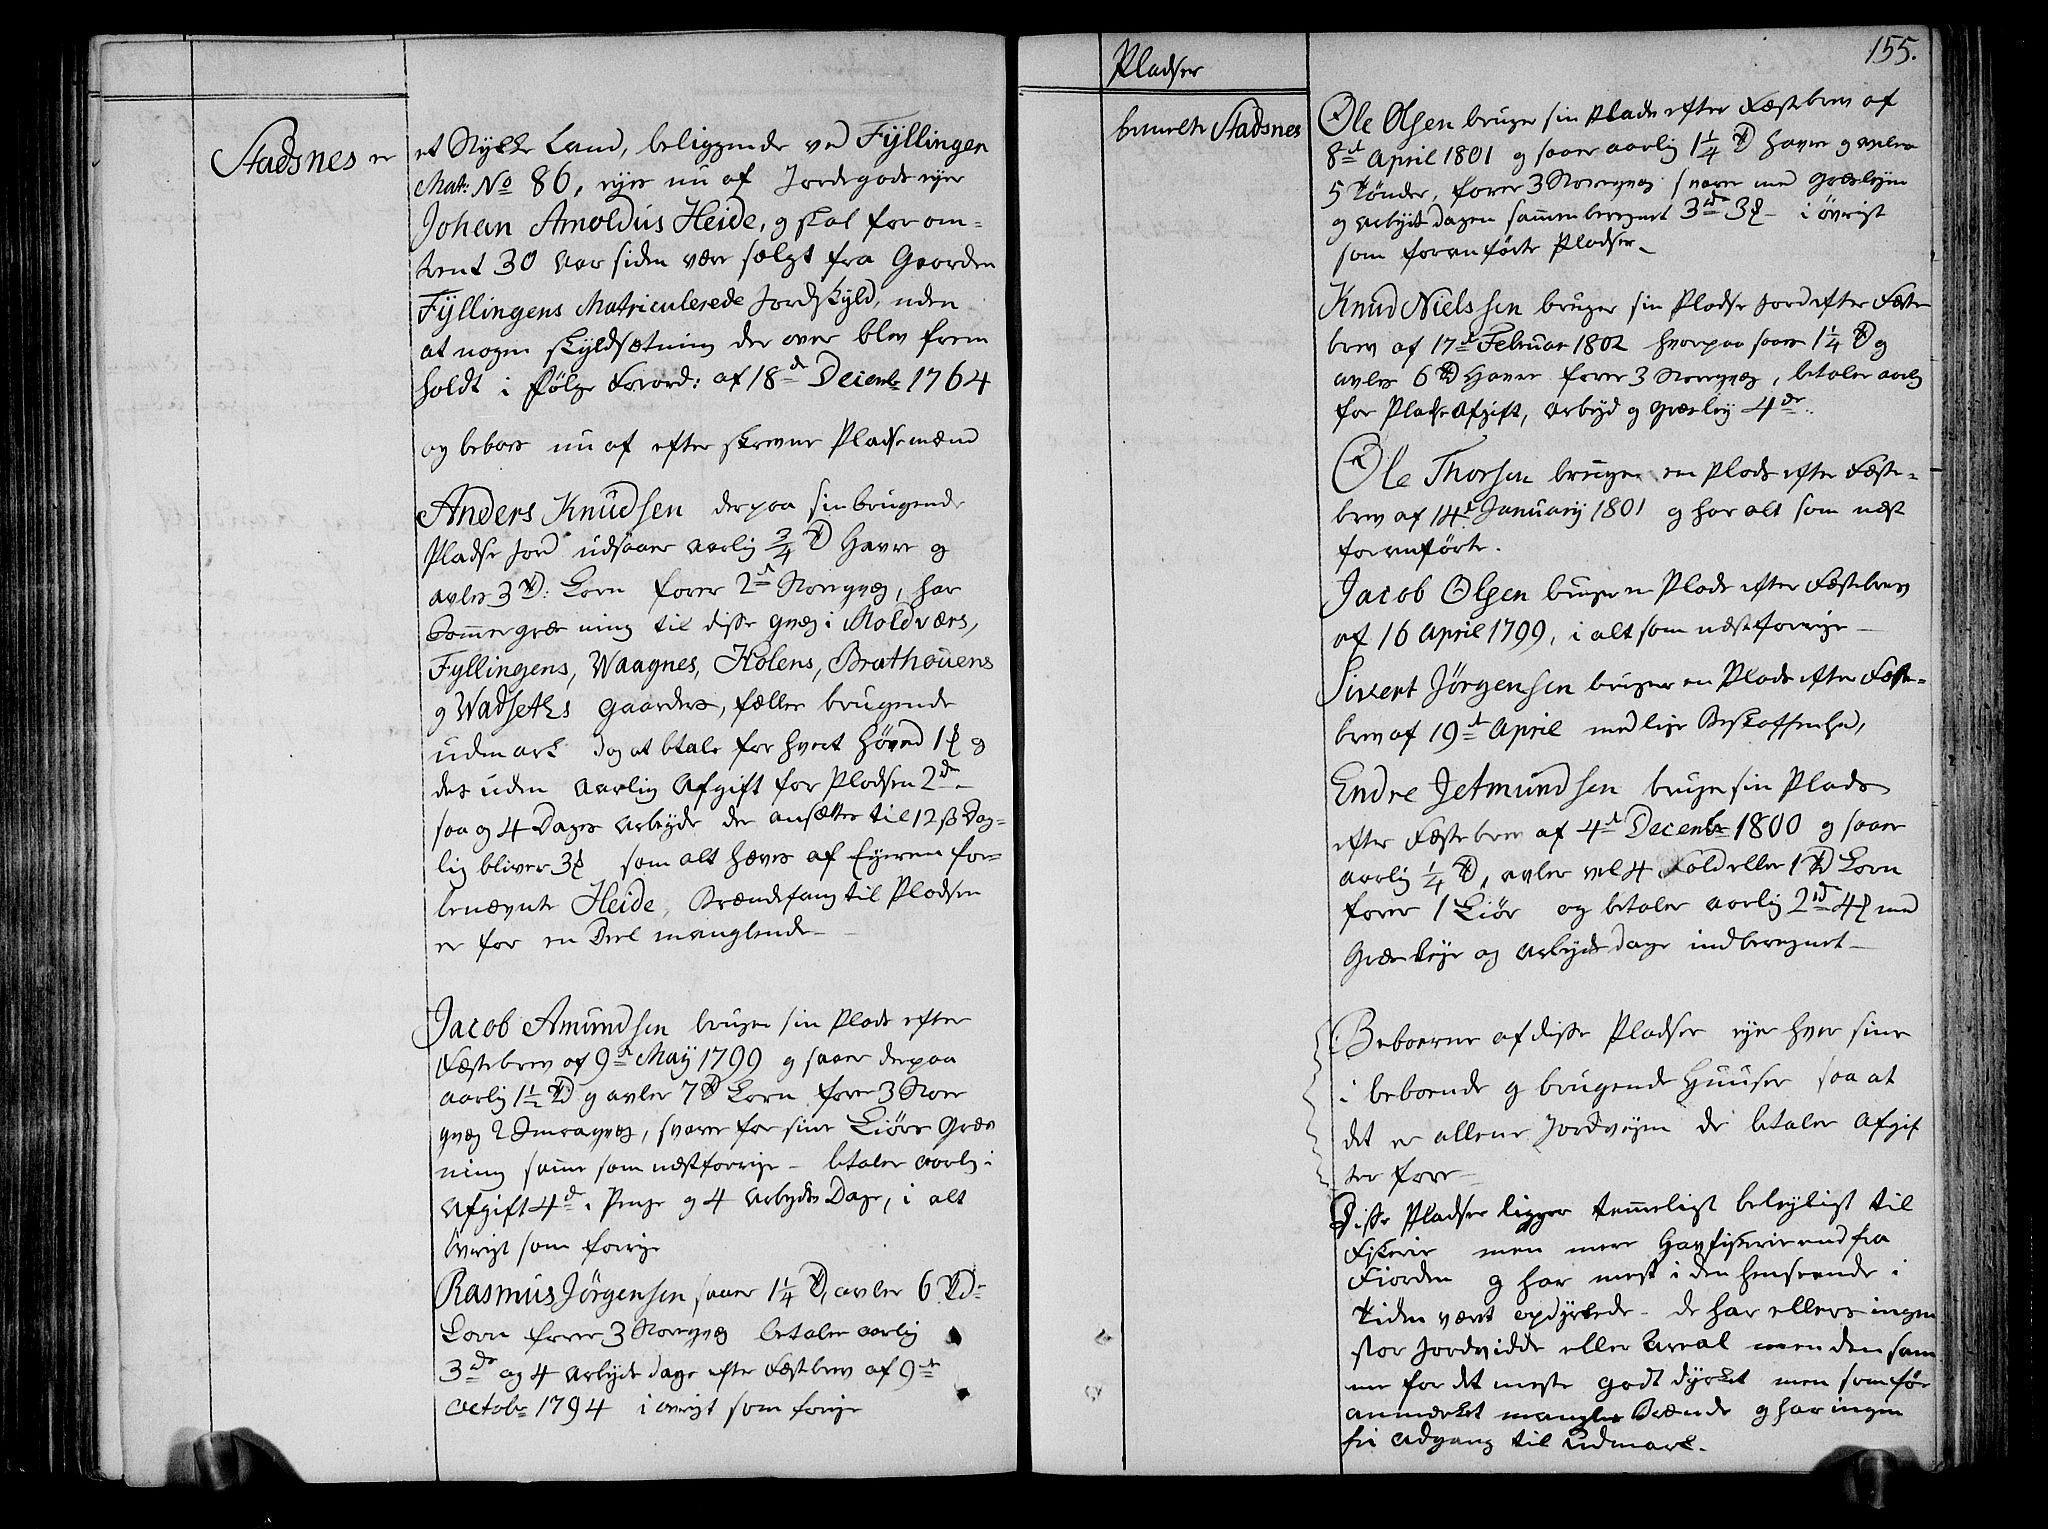 Stadsnes er
et Stykke Land, beliggende ved Fyllingen
Mat: No 86, eyes nu af Jordegodseyer
Johan Arnoldus Heide, og skal for om-
trent 30 Aar siden være solgt fra Gaarden
Fyllingens Matriculerede Jordskyld, uden
at nogen skyldsætning der over blev frem
holdt i følge Forord: af 18d Decembr 1764
og beboes nu af efter skrevne Pladsemænd
Anders Knudsen der paa sin brugende
Pladse Jord udsaaer aarlig 3/4 Td Havre og
avler 3 Td: Korn foder 2de Storqvæg, har
Sommergræsning til disse qvæg i Moldværs,
Fyllingens, Waagnes, Holens, Brathouens
og Wadseths Gaarders, fælles brugende
udmark dog at btale for hvert høved 1 og
desuden aarlig Afgift for Pladsen 2 dr
saa og 4 Dages Arbeyde der ansættes til 12 ß Dag-
lig bliver 3 som alt hæves af Eyeren for-
benævnte Heide, Brændefang til Pladsen
er for en Deel manglende-
Jacob Amundsen bruger sin Plads efter
Fæstebrev af 9de May 1799 og saaer derpaa
aarlig 1½ Td og avler 7 Td Korn foder 3 Stor
qvæg 2 Smaaqvæg, svarer for sine Kiörs Græs
ning samme som næstforrige - betaler aarlig i
Afgift 4 d. Penge og 4 Arbeydes Dage, i alt
övrigt som forrige
Rasmus Jörgensen saaer 1¼ Td, avler 6 Td-
Korn foder 3 Storqvæg betaler aarlig
3 dr og 4 Arbeyds dage efter Fæstebrev af 9de
Octobr 1794 i övrigt som forrige
155.
Pladser
bemelte Stadsnes
Ole Olsen bruger sin Plads efter Fæstebrev af
8de April 1801 og saaer aarlig 1¼ Td Havre og avler
5 Tønder, foder 3 Storqvæg svarer med Græsleyen
og Arbeyds Dagen sammenberegnet 3rd 3 - i övrigt
som foranførte Pladser-
Knud Nielssen bruger sin Pladse Jord efter Fæste
brev af 17de Februar 1802 hvorpaa saaes 1¼ Td og
avles 6 Td Havre foder 3 Storqvæg, betaler aarlig
for Pladse Afgift, Arbeyd og Græsley 4 dr.
Ole Thorsen bruger en Plads efter Fæste-
brev af 14de January 1801 og har alt som næst
foranførte.
Jacob Olsen bruger en Plads efter Fæstebrev
af 16 April 1799, i alt som næstforrige-
Sivert Jörgensen bruger en Plads efter Fæste-
brev af 19de April med lige Beskaffenhed,
Endre Jetmundsen bruger sin Plads
efter Fæstebrev af 4de Decembr 1800 og saaer
aarlig ¼ Td, avler vel 4 Fold eller 1 Td Korn
foder 1 Kiör og betaler aarlig 2rd 4 med
Græsleye og Arbeyds Dage indberegnet-
Beboerne af disse Pladser eyer hver sine
i beboende og brugende Huuser saa at
det er allene Jordveyen de betaler Afgif
ter fore-
Disse Pladser ligger temmeligt beleyligt til
Fiskerie men mere Havfiskerie end fra
Fiorden og har mest i den henseende i
Tiden været opdyrkede- de har ellers ingen
stor Jordvidde eller Areal men den sam
me for det meste godt dyrket men som för
anmærket mangler Brænde og har ingen
fri adgang til udmark.